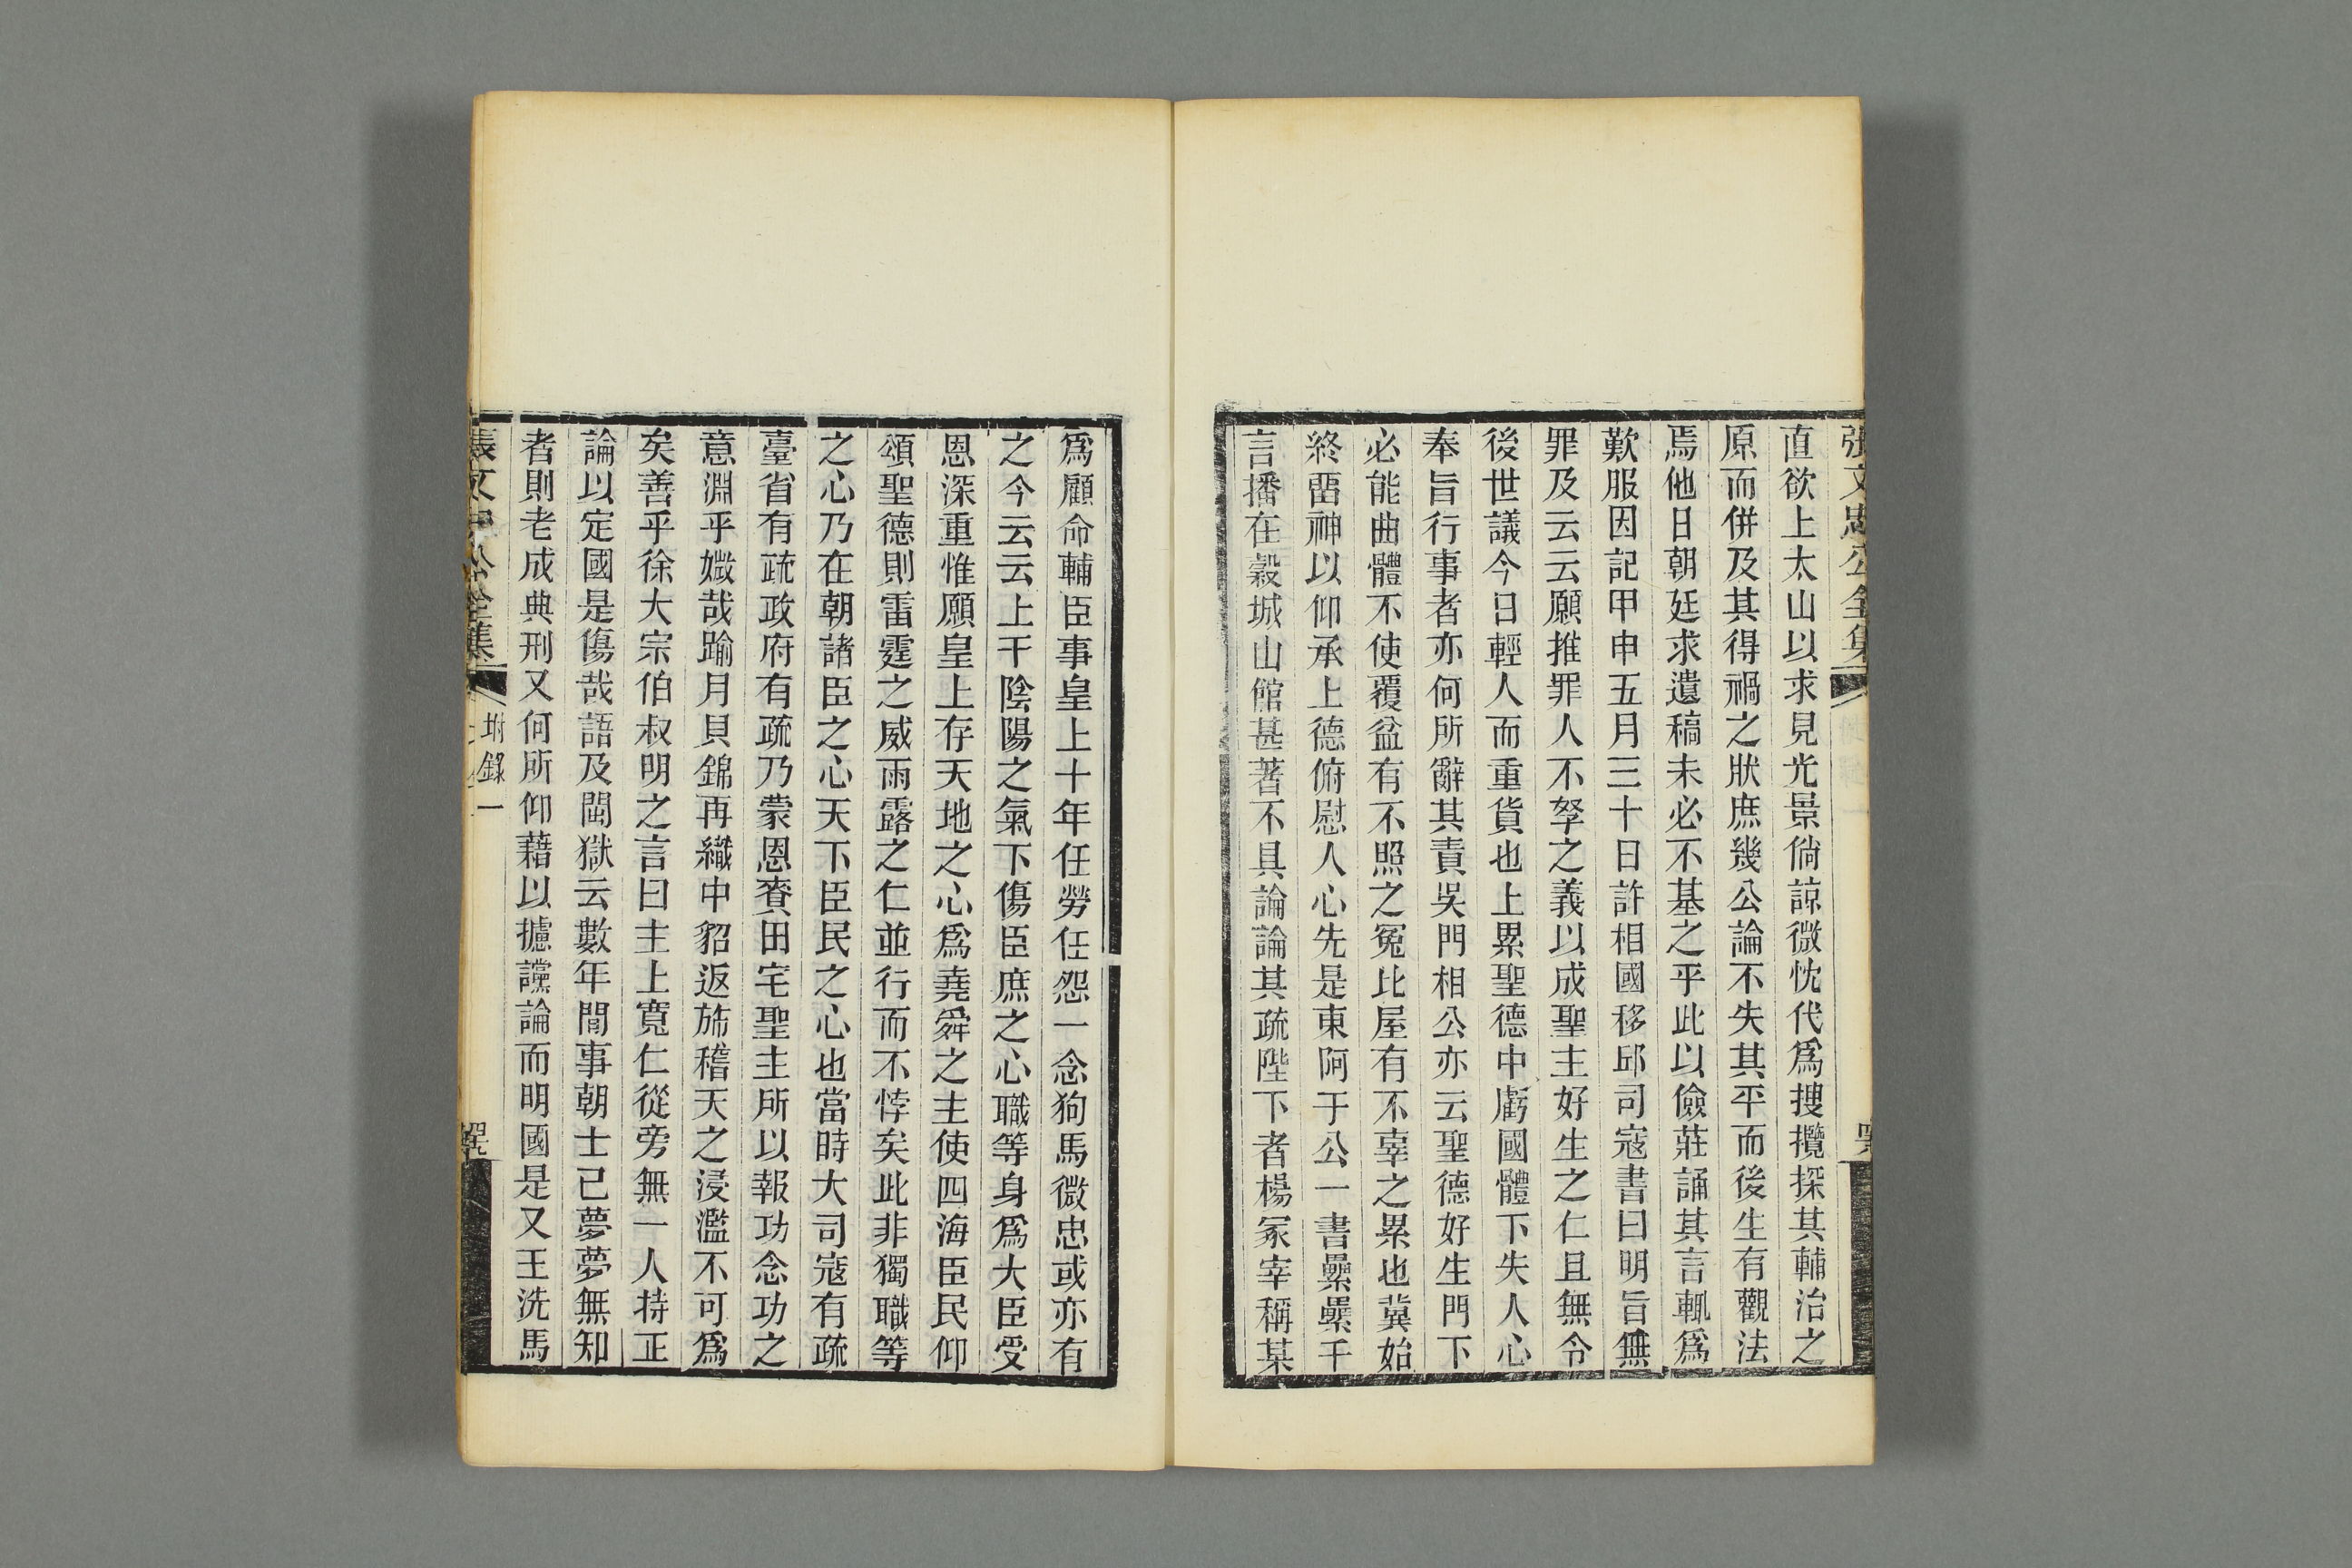 張文忠公全集
直欲上太山以求見光景倘諒微忱代爲搜攬探其輔治之
原而併及其得禍之狀庶幾公論不失其平而後生有觀法
焉他日朝廷求遺稿未必不基之乎此以儉莊誦其言輒爲
歎服因記甲申五月三十日許相國移邱司寇書曰明旨無
罪及云云願推罪人不孥之義以成聖主好生之仁且無令
後世議今日輕人而重貨也上累聖德中虧國體下失人心
奉旨行事者亦何所辭其責吳門相公亦云聖德好生門下
必能曲體不使覆盆有不照之冤比屋有不辜之累也冀始
終畱神以仰承上德俯慰人心先是東阿于公一書纍纍千
言播在穀城山館甚著不具論論其疏陛下者楊冢宰稱某
爲顧命輔臣事皇上十年任勞任怨一念狗馬微忠或亦有
之今云云上干陰陽之氣下傷臣庶之心職等身爲大臣受
恩深重惟願皇上存天地之心爲堯舜之主使四海臣民仰
頌聖德則雷霆之威雨露之仁並行而不悖矣此非獨職等
之心乃在朝諸臣之心天下臣民之心也當時大司寇有疏
臺省有疏政府有疏乃蒙恩賚田宅聖主所以報功念功之
意淵乎媺哉踰月貝錦再織中貂返斾稽天之浸濫不可爲
矣善乎徐大宗伯叔明之言曰主上寬仁從旁無一人持正
論以定國是傷哉語及閩獄云數年閒事朝士已夢夢無知
者則老成典刑又何所仰藉以攄讜論而明國是又王洗馬
張文忠公全集
坿錄一